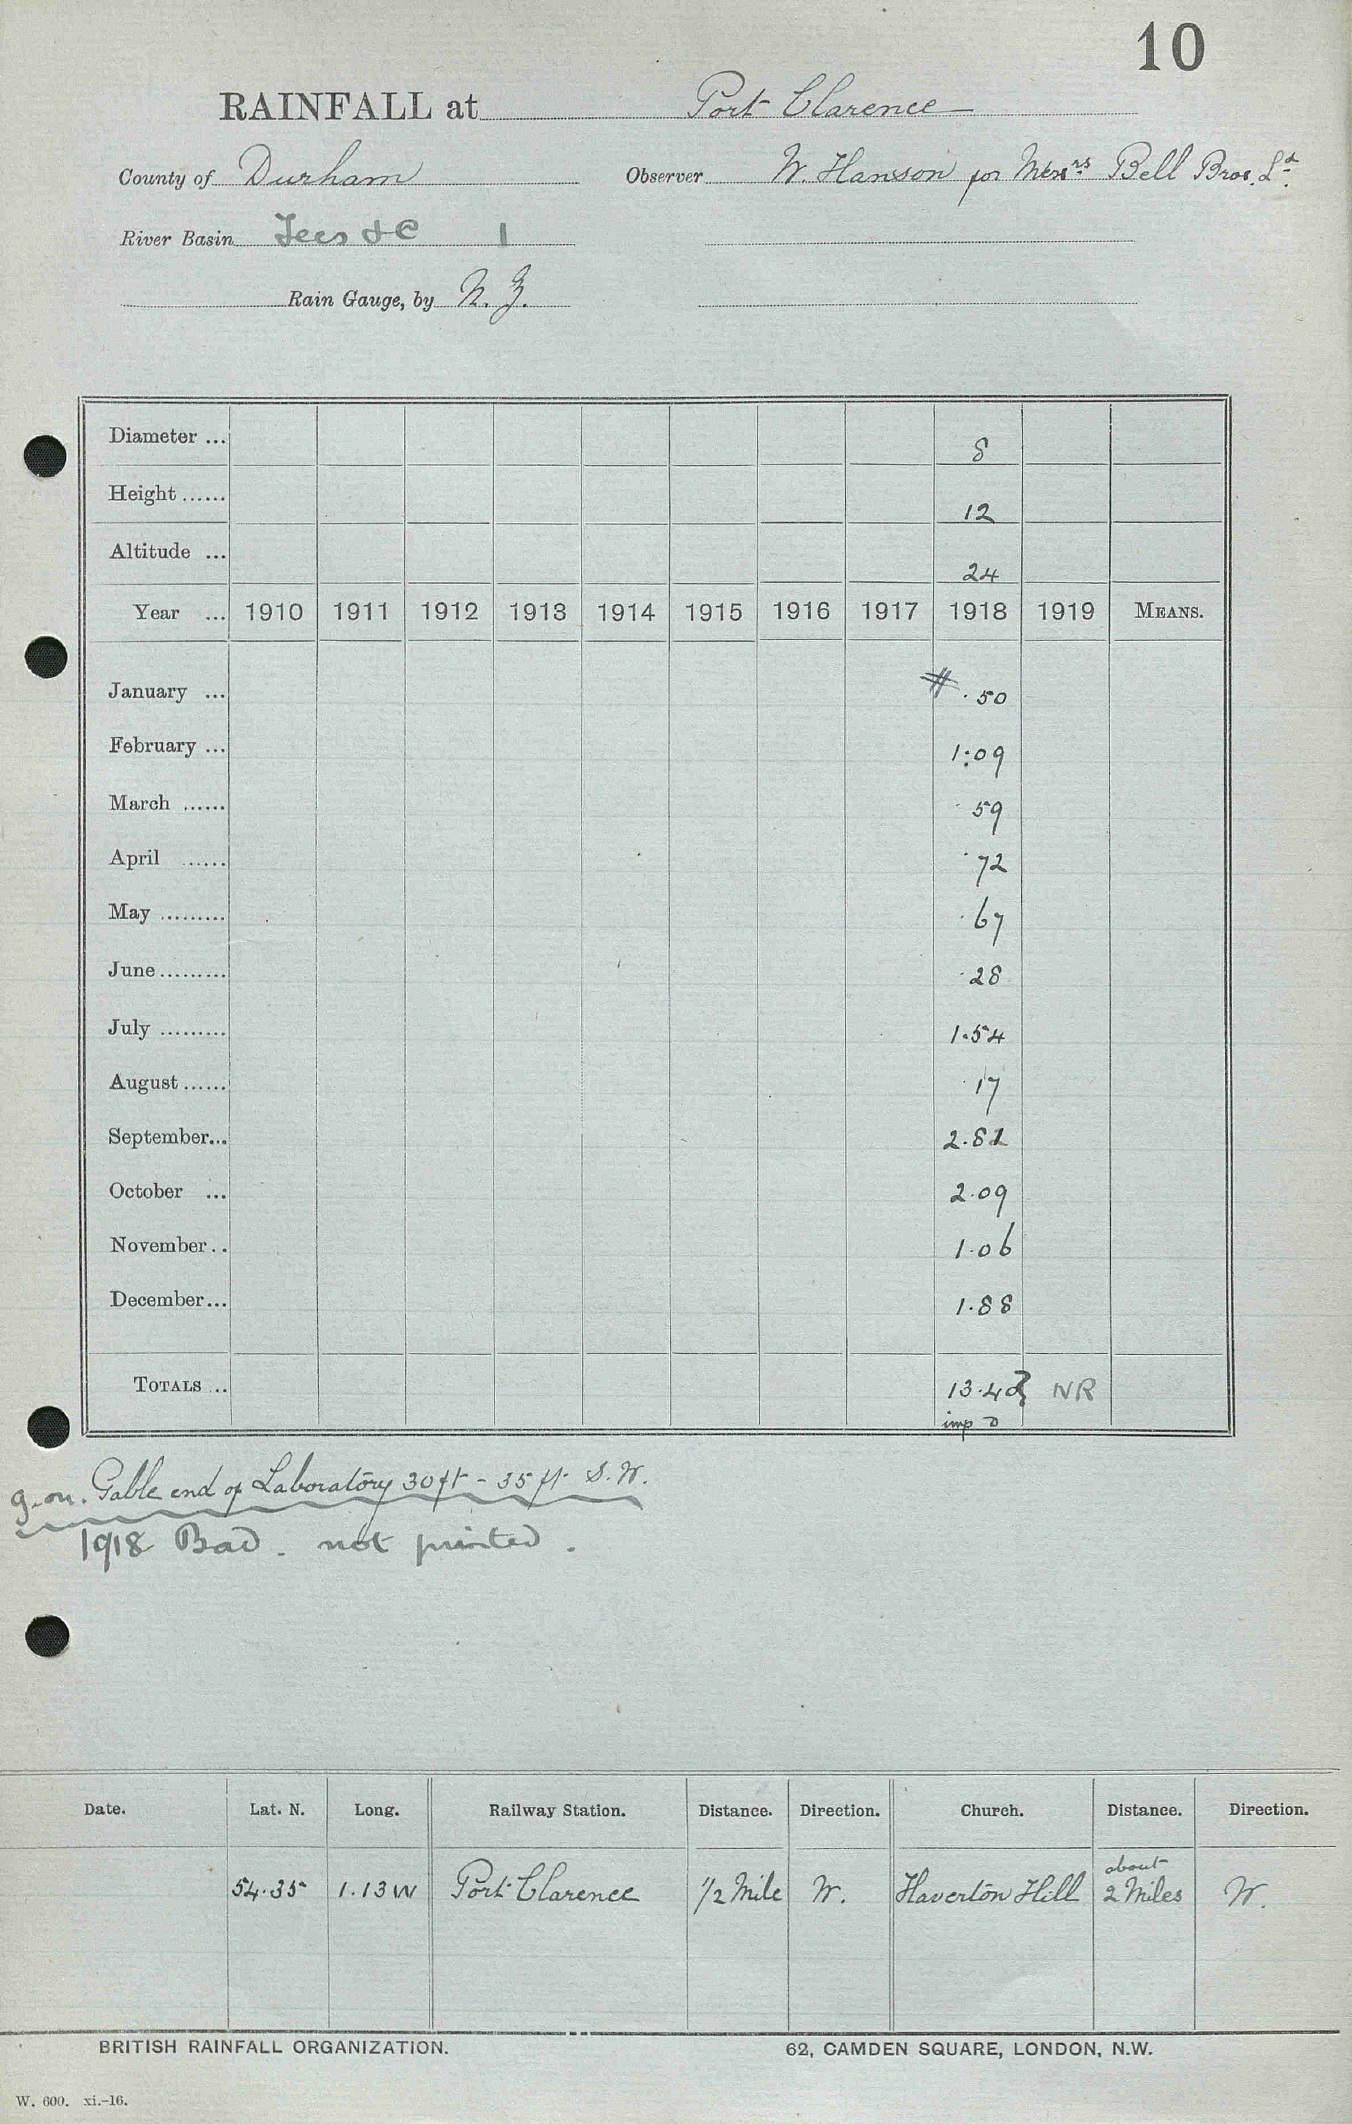 10
RAINFALL at Port Clarence
County of Durham Observer W. Hanson for Messrs Bell Bros. Ld.
River Basin Tees &c 1
Rain Gauge, by N. Z.
Diameter ... 8
Height ...... 12
Altitude ... 24
Year ... 1910 1911 1912 1913 1914 1915 1916 1917 1918 1919 MEANS.
January ... # .50
February ... 1.09
March ...... .59
April ...... .72
May ......... .67
June ......... .28
July ......... 1.54
August ...... .17
September... 2.81
October ... 2.09
November .. 1.06
December ... 1.88
TOTALS .. 13.42 NR
imp D
g. on. Gable end of Laboratory 30ft - 35 ft. S.W.
1918 Bad. not printed.
Date. Lat. N. Long. Railway Station. Distance. Direction. Church. Distance. Direction.
54.35 1.13W Port Clarence 1/2 Mile W. Haverton Hill about 2 Miles W.
BRITISH RAINFALL ORGANIZATION. 62, CAMDEN SQUARE, LONDON, N.W.
W. 600. xi.-16.